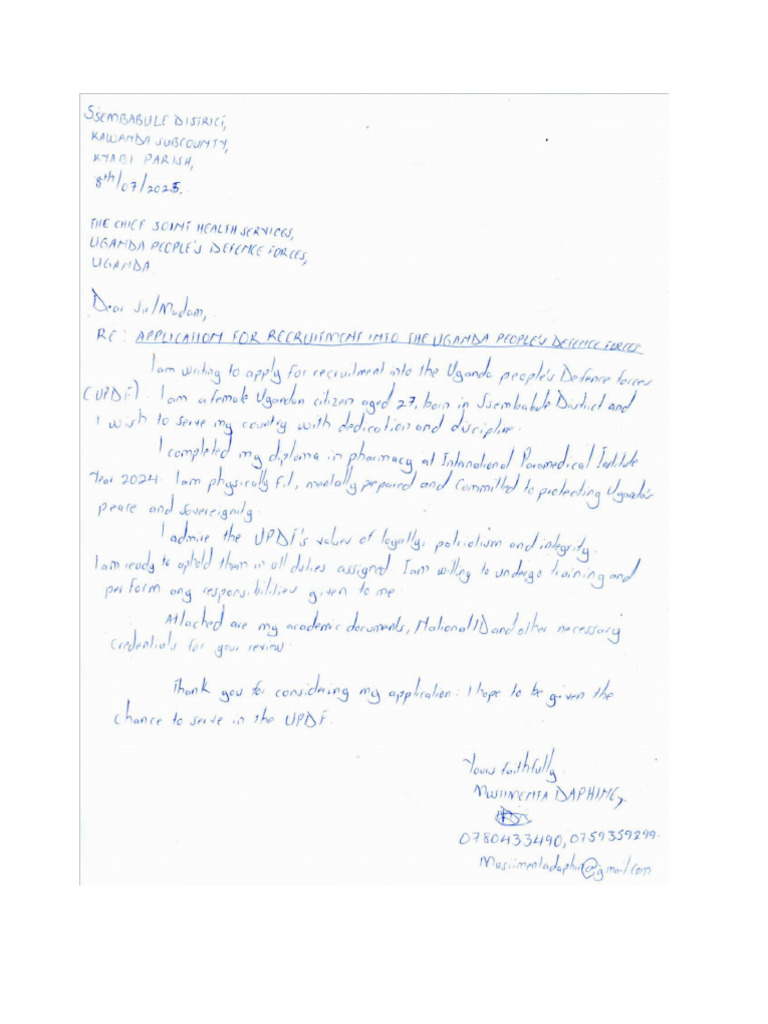 SSEMBABULE DISTRICT,
KAWANDA SUBCOUNTY,
KYABI PARISH,
8th/07/2025.
THE CHIEF JOINT HEALTH SERVICES,
UGANDA PEOPLE'S DEFENCE FORCES,
UGANDA.
Dear Sir/Madam,
RE: APPLICATION FOR RECRUITMENT INTO THE UGANDA PEOPLE'S DEFENCE FORCES
I am writing to apply for recruitment into the Uganda people's Defence forces
(UPDF). I am a female Ugandan citizen aged 27, born in Ssembabule District and
I wish to serve my country with dedication and discipline.
I completed my diploma in pharmacy at International Paramedical Institute
Year 2024. I am physically fit, mentally prepared and committed to protecting Uganda's
peace and sovereignity.
I admire the UPDF's values of loyalty, patriotism and integrity.
I am ready to uphold them in all duties assigned. I am willing to undergo training and
perform any responsibilities given to me.
Attached are my academic documents, National ID and other necessary
credentials for your review.
Thank you for considering my application. I hope to be given the
chance to serve in the UPDF.
Yours faithfully
MUSIIMENTA DAPHINE,
0780433490, 0759359299.
@gmail.com